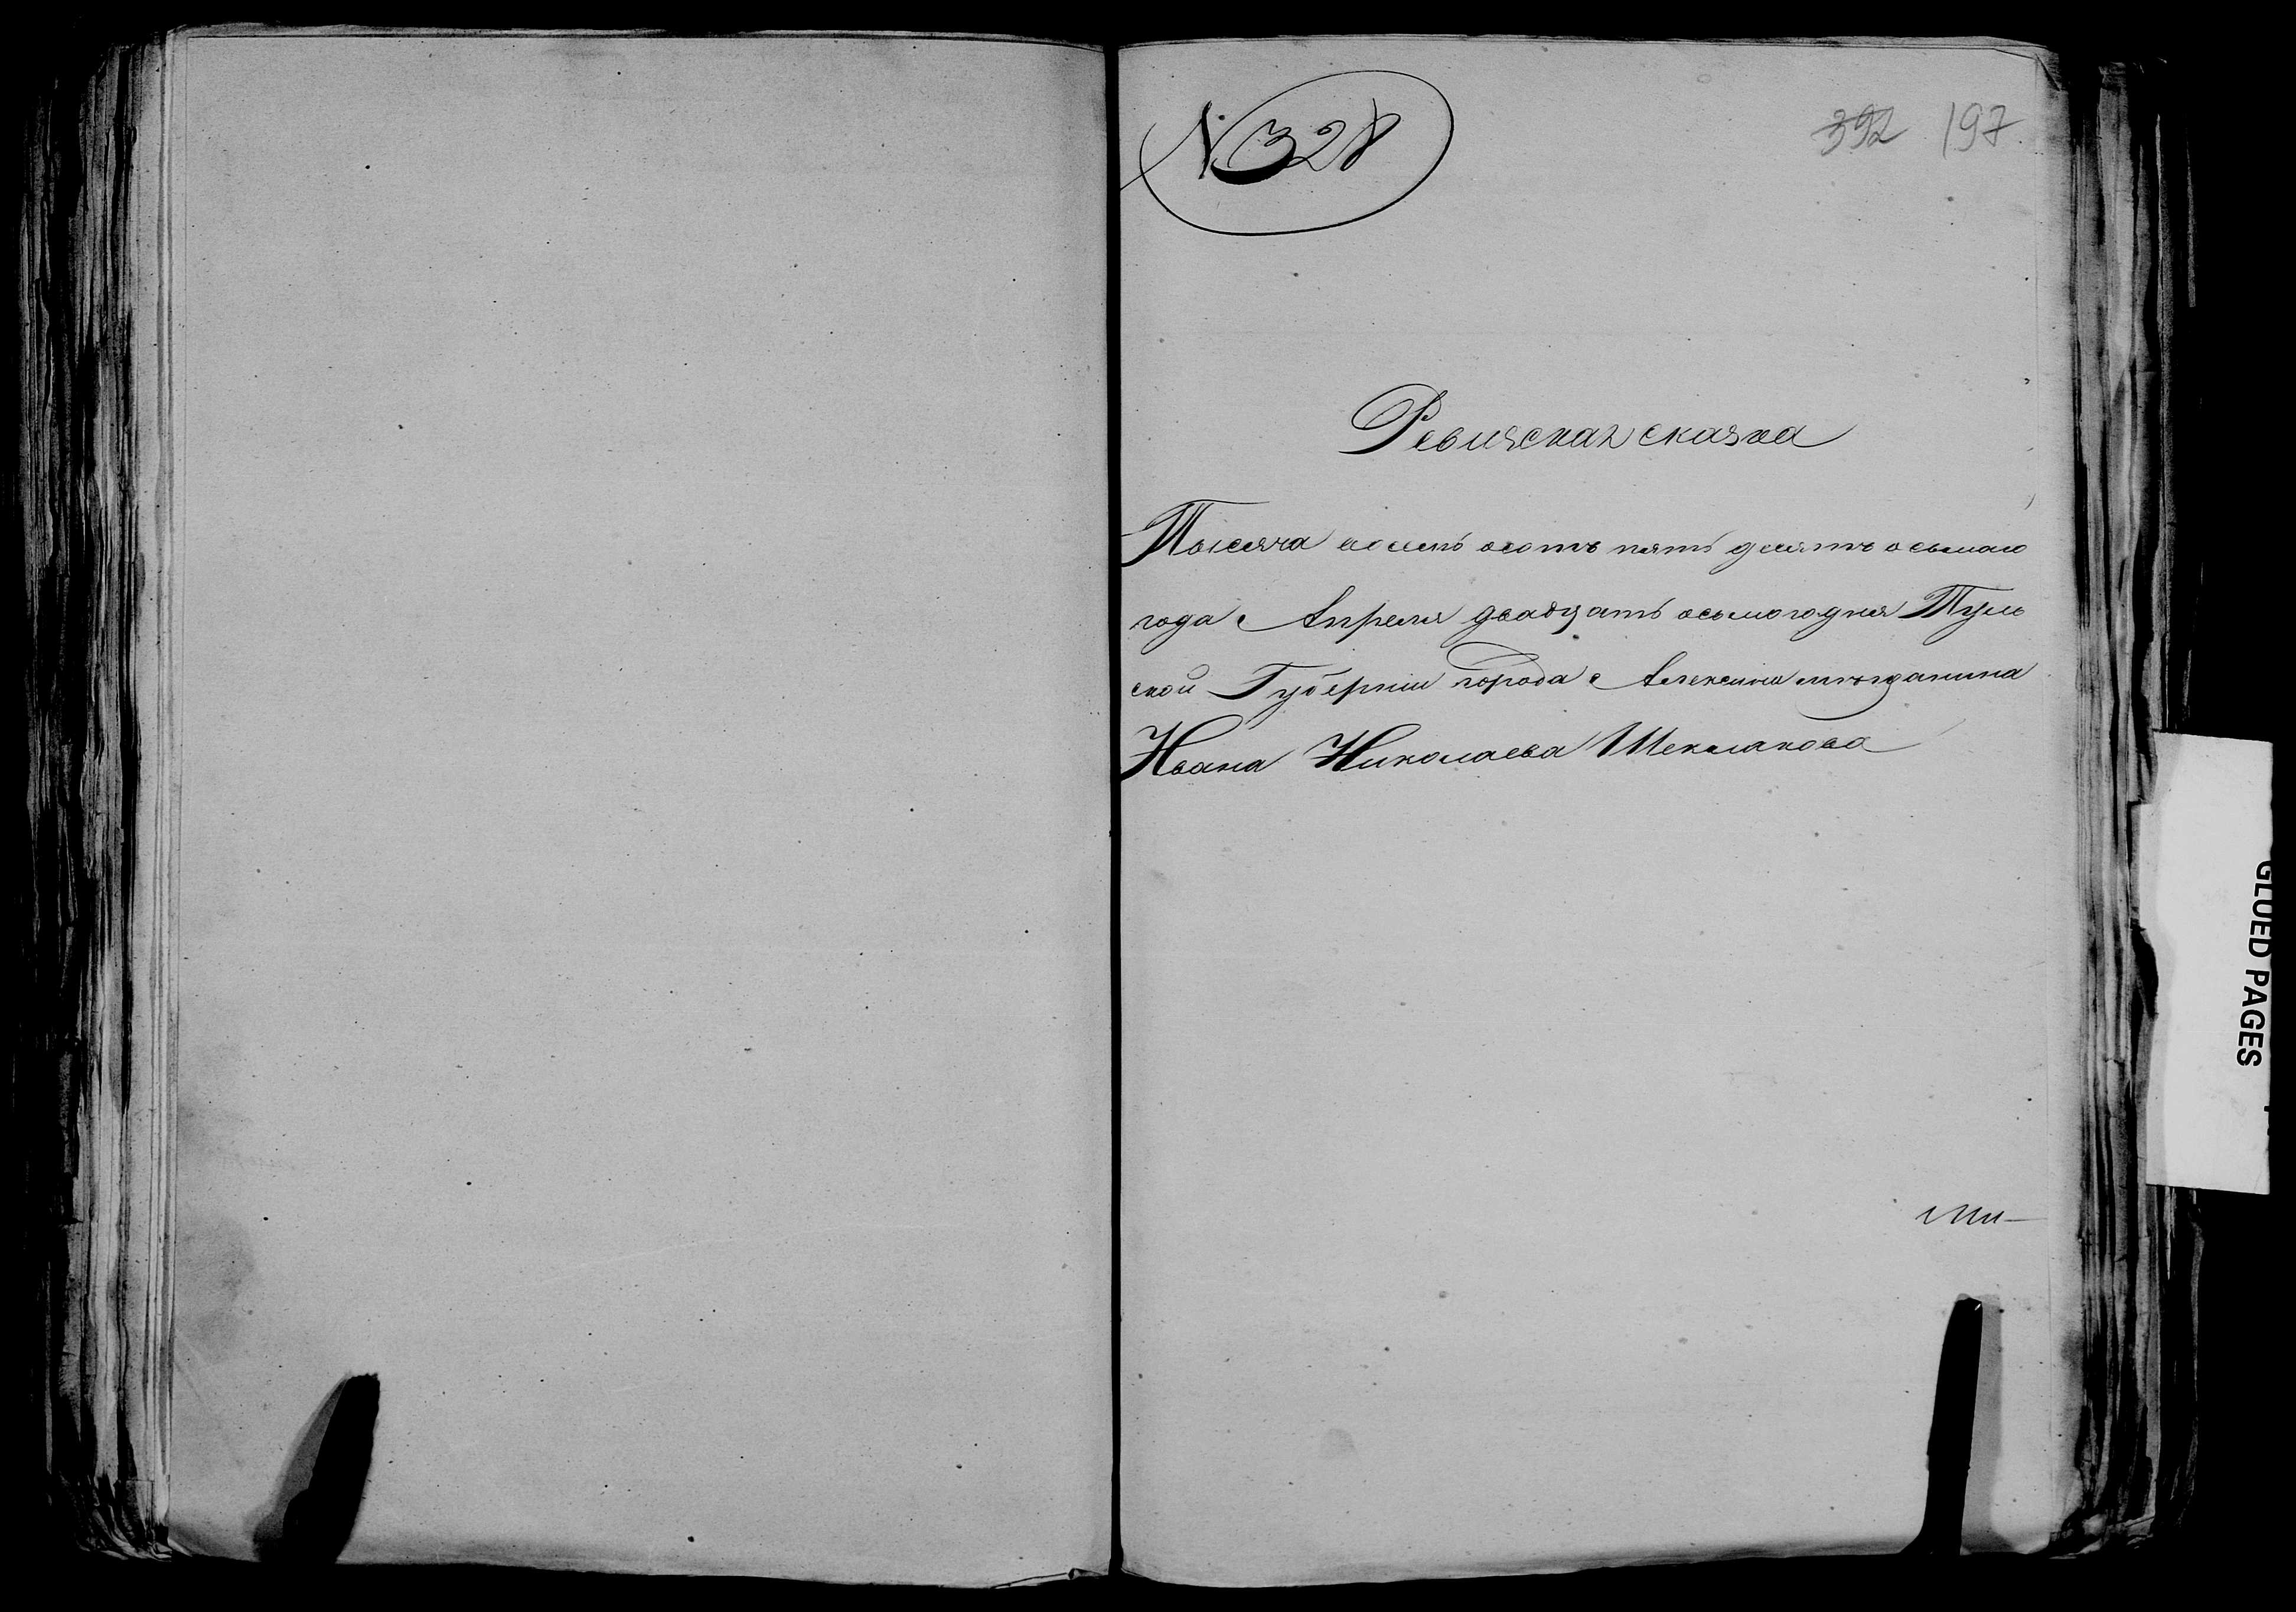 N 328
392 197
Ревизская сказка
Тысяча восемь сотъ пять десятъ осьмаго
года Апреля двадцать осьмого дня Туль
ской Губернии города Алексина мѣщанина
Ивана Николаева Шеклакова
GLUED PAGES